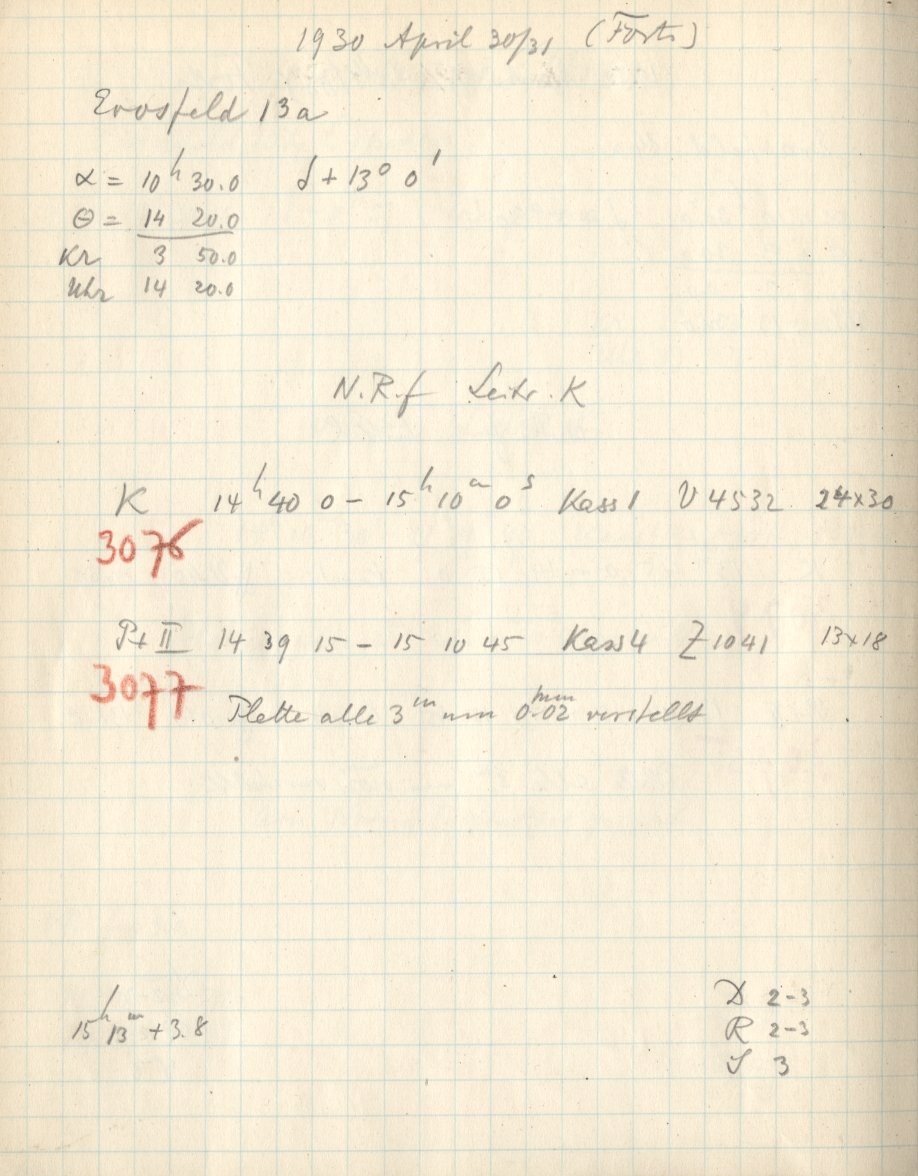 1930 April 30/31 (Forts)
Erosfeld 13a
α = 10ʰ 30.0 δ + 13° 0'
Θ = 14 20.0
Kr 3 50.0
Uhr 14 20.0
N.R.f Leitr. K
K 14ʰ 40 0 – 15ʰ 10ᵐ 0ˢ Kass 1 V 4532 24×30
3076
Pt II 14 39 15 – 15 10 45 Kass 4 Z 1041 13×18
3077
Platte alle 3ᵐ um 0.02ᵐᵐ verstellt
15ʰ 13ᵐ + 3.8
D 2-3
R 2-3
S 3